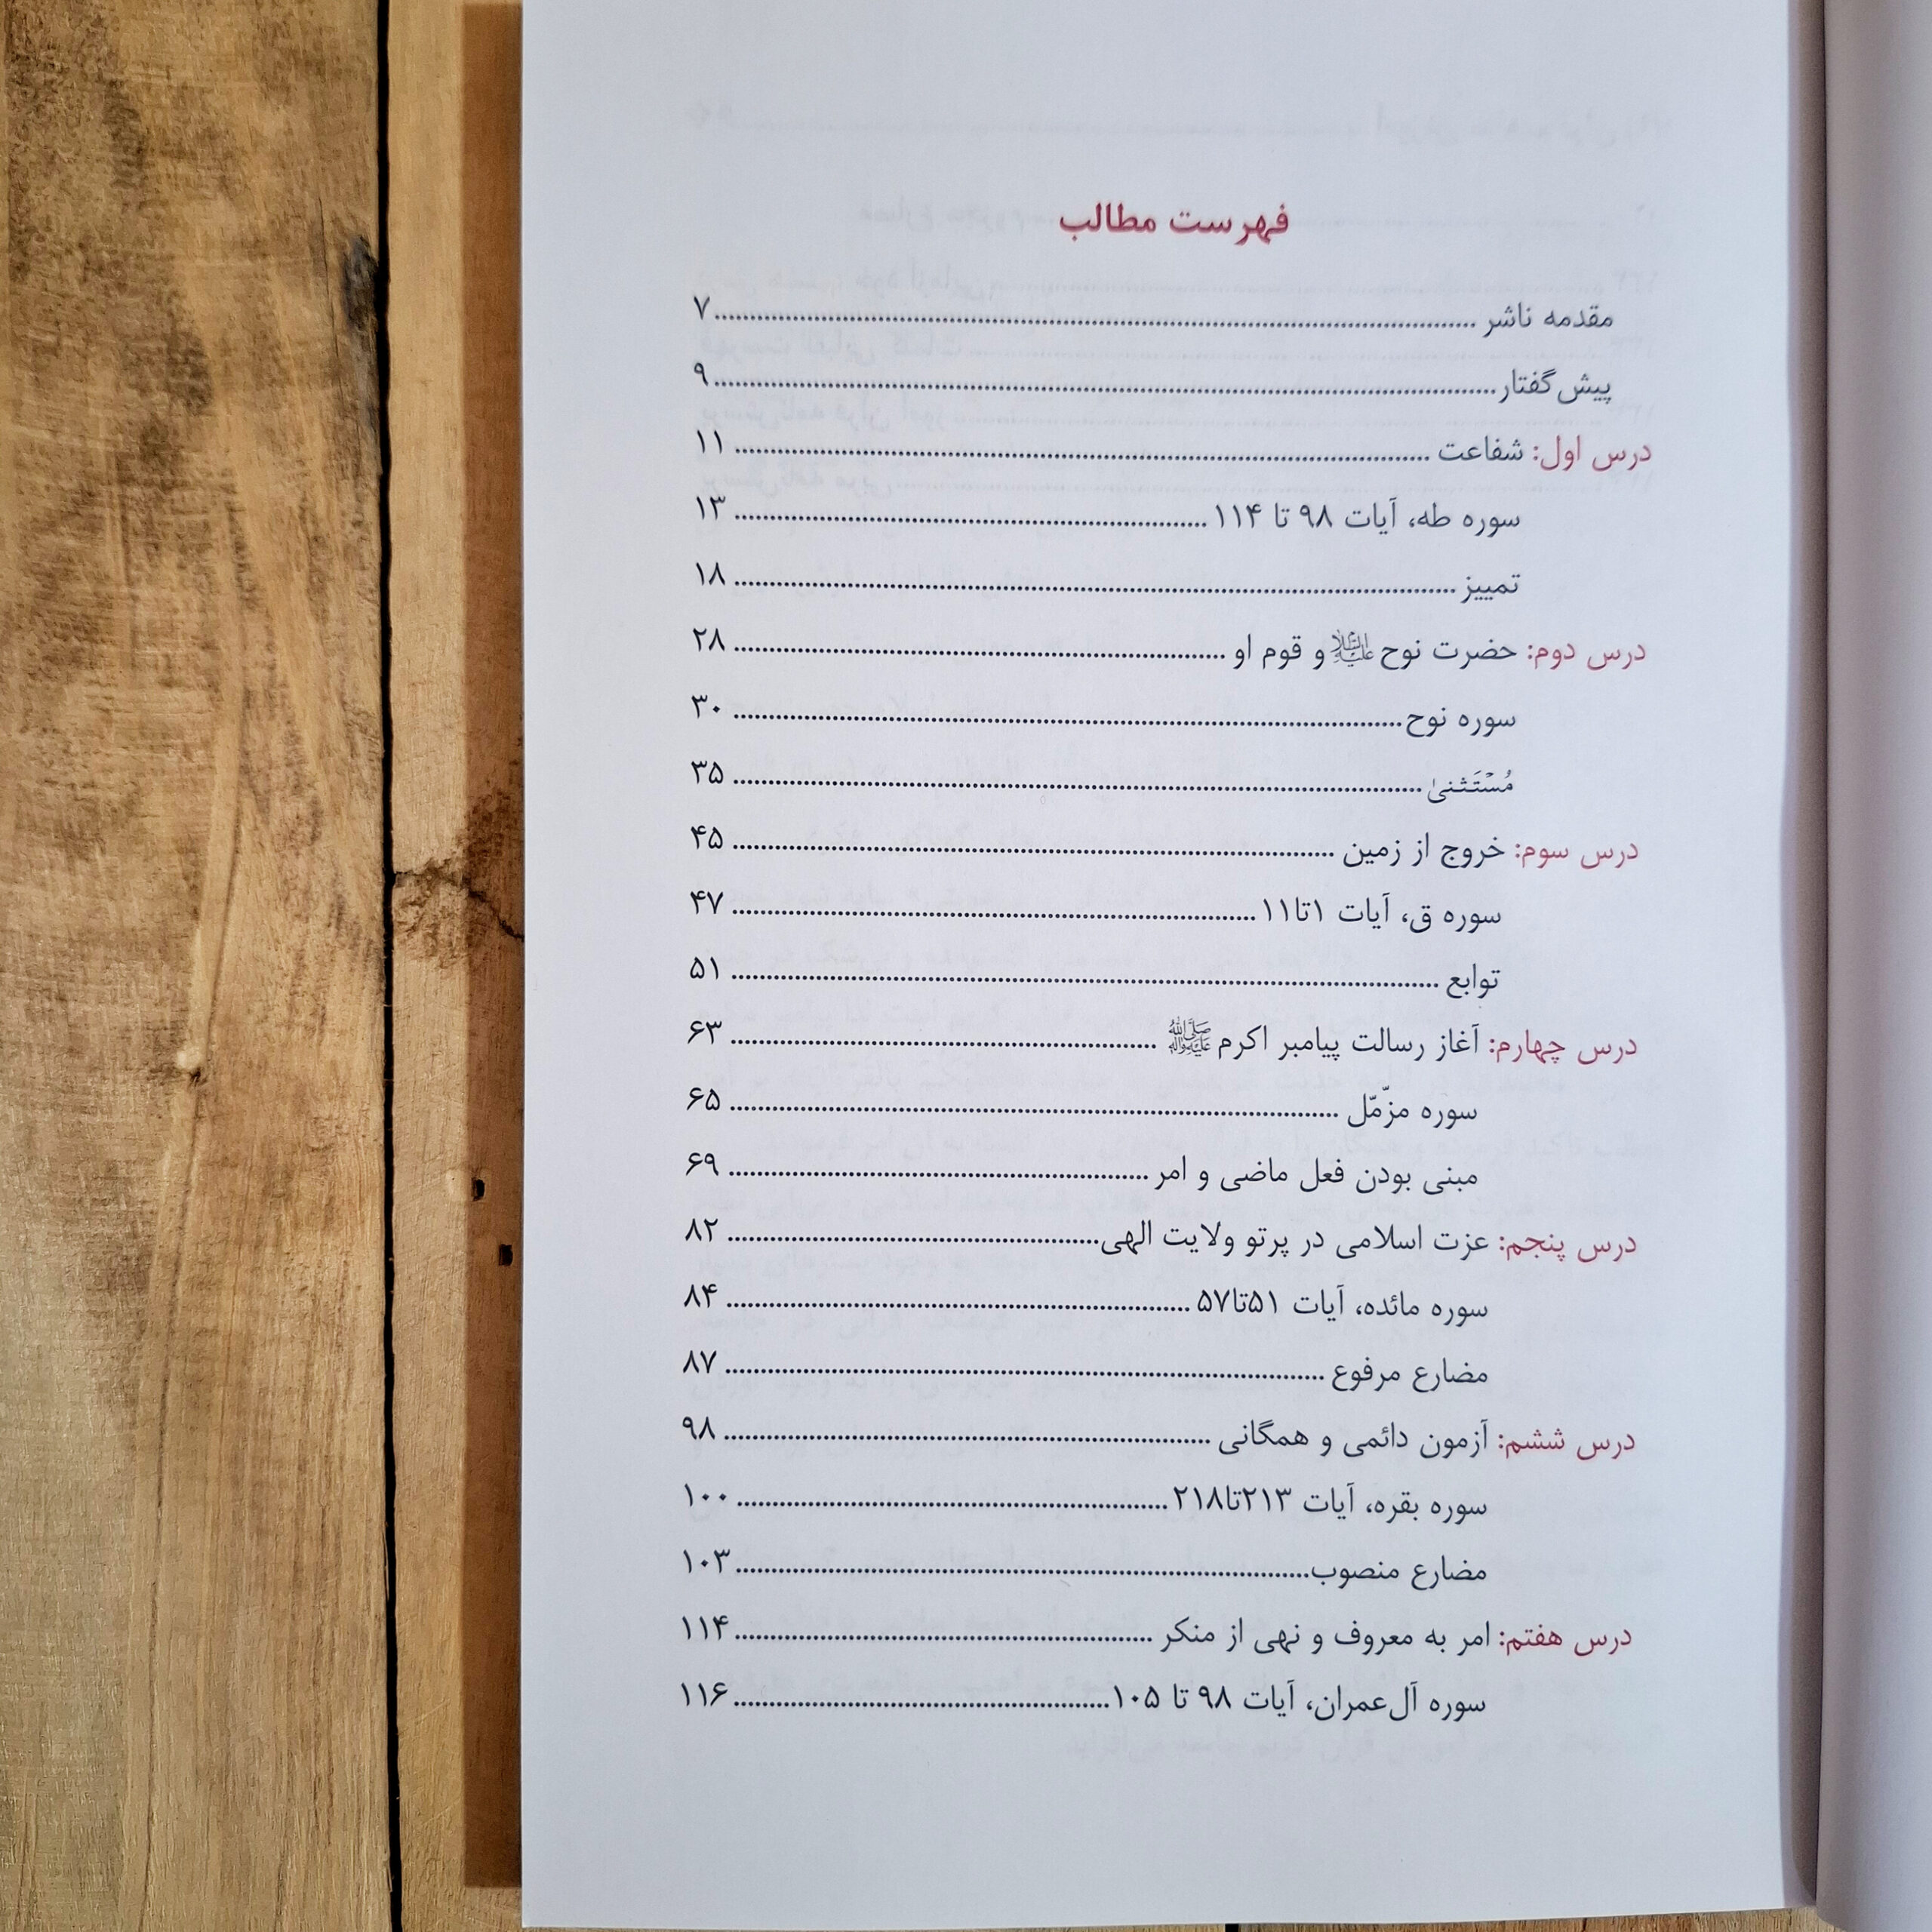 فهرست مطالب
مقدمه ناشر ........ ۷
پیش‌گفتار ........ ۹
درس اول: شفاعت ........ ۱۱
سوره طه، آیات ۹۸ تا ۱۱۴ ........ ۱۳
تمییز ........ ۱۸
درس دوم: حضرت نوح علیه‌السلام و قوم او ........ ۲۸
سوره نوح ........ ۳۰
مُسْتَثنیٰ ........ ۳۵
درس سوم: خروج از زمین ........ ۴۵
سوره ق، آیات ۱تا۱۱ ........ ۴۷
توابع ........ ۵۱
درس چهارم: آغاز رسالت پیامبر اکرم صلی‌الله‌علیه‌وآله ........ ۶۳
سوره مزمّل ........ ۶۵
مبنی بودن فعل ماضی و امر ........ ۶۹
درس پنجم: عزت اسلامی در پرتو ولایت الهی ........ ۸۲
سوره مائده، آیات ۵۱تا۵۷ ........ ۸۴
مضارع مرفوع ........ ۸۷
درس ششم: آزمون دائمی و همگانی ........ ۹۸
سوره بقره، آیات ۲۱۳تا۲۱۸ ........ ۱۰۰
مضارع منصوب ........ ۱۰۳
درس هفتم: امر به معروف و نهی از منکر ........ ۱۱۴
سوره آل‌عمران، آیات ۹۸ تا ۱۰۵ ........ ۱۱۶